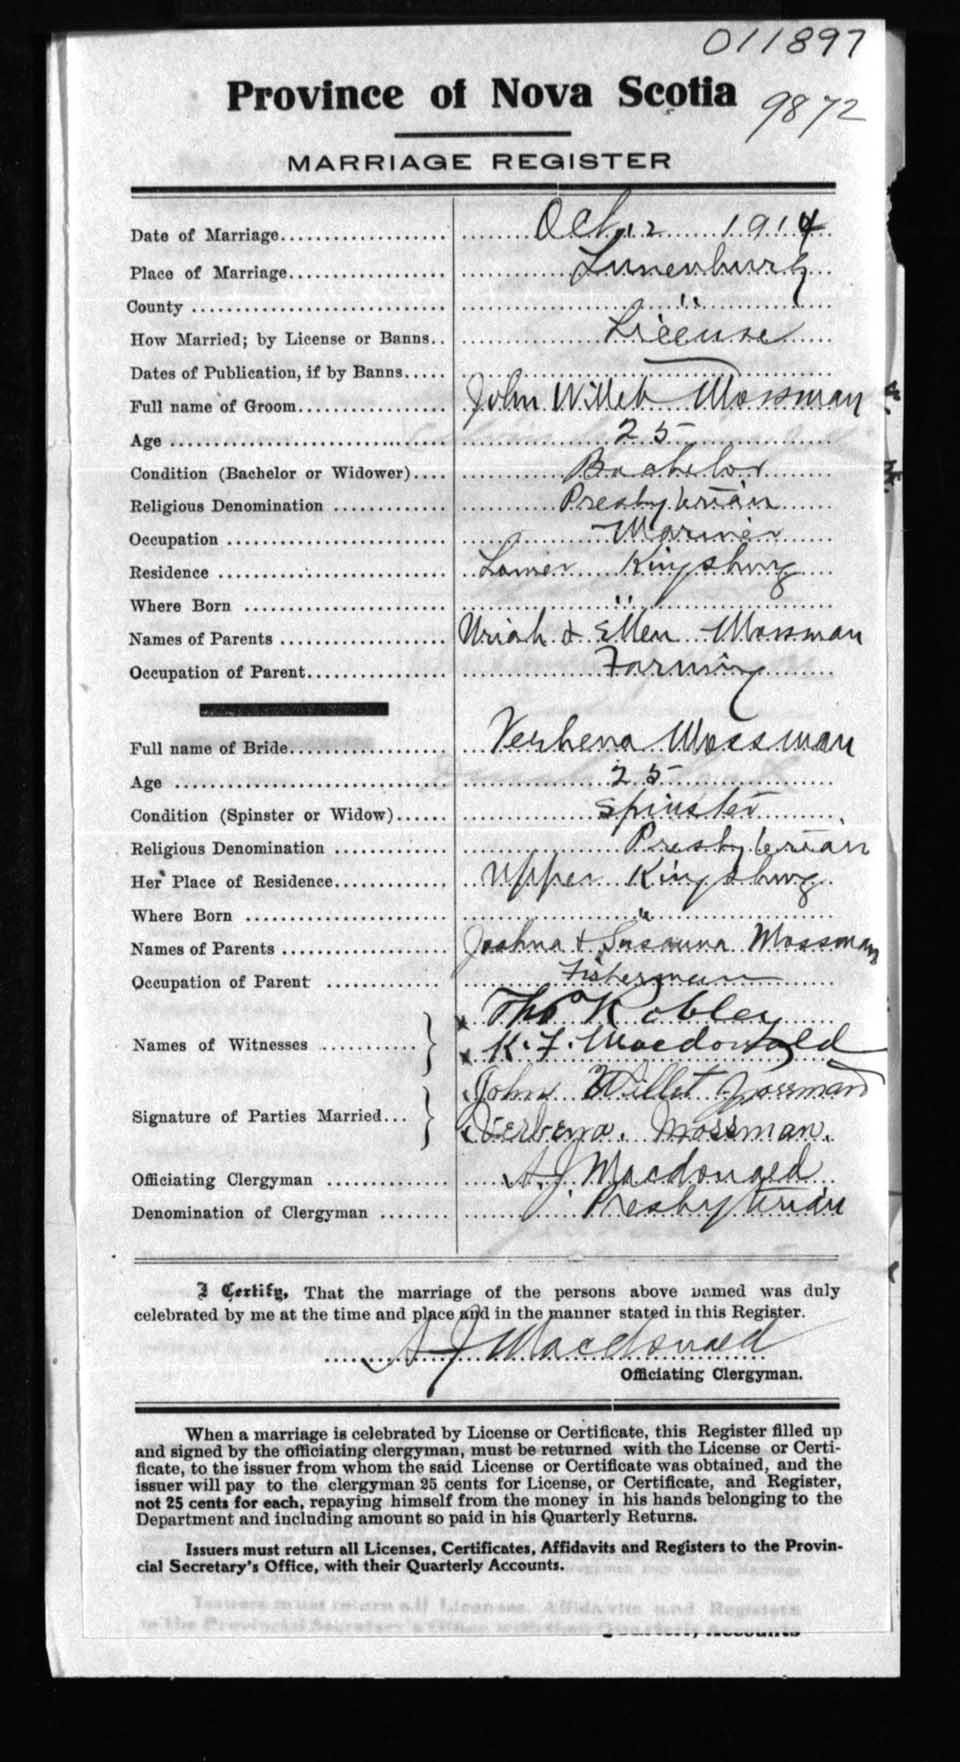 011897
Province of Nova Scotia
9872
MARRIAGE REGISTER
Date of Marriage Oct 12 1914
Place of Marriage Lunenburg
County "
How Married; by License or Banns License
Dates of Publication, if by Banns
Full name of Groom John Willet Mossman
Age 25
Condition (Bachelor or Widower) Bachelor
Religious Denomination Presbyterian
Occupation Mariner
Residence Lower Kingsburg
Where Born "
Names of Parents Uriah & Ellen Mossman
Occupation of Parent Farming
Full name of Bride Verbena Mossman
Age 25
Condition (Spinster or Widow) Spinster
Religious Denomination Presbyterian
Her Place of Residence Upper Kingsburg
Where Born "
Names of Parents Joshua & Susanna Mossman
Occupation of Parent Fisherman
x Tho Kobley
Names of Witnesses
x K. F. Macdonald
John Willet Mossman
Signature of Parties Married
Verbena. Mossman.
Officiating Clergyman A. J. Macdonald
Denomination of Clergyman Presbyterian
I Certify, That the marriage of the persons above named was duly
celebrated by me at the time and place and in the manner stated in this Register.
A J Macdonald
Officiating Clergyman.
When a marriage is celebrated by License or Certificate, this Register filled up
and signed by the officiating clergyman, must be returned with the License or Certi-
ficate, to the issuer from whom the said License or Certificate was obtained, and the
issuer will pay to the clergyman 25 cents for License, or Certificate, and Register,
not 25 cents for each, repaying himself from the money in his hands belonging to the
Department and including amount so paid in his Quarterly Returns.
Issuers must return all Licenses, Certificates, Affidavits and Registers to the Provin-
cial Secretary's Office, with their Quarterly Accounts.